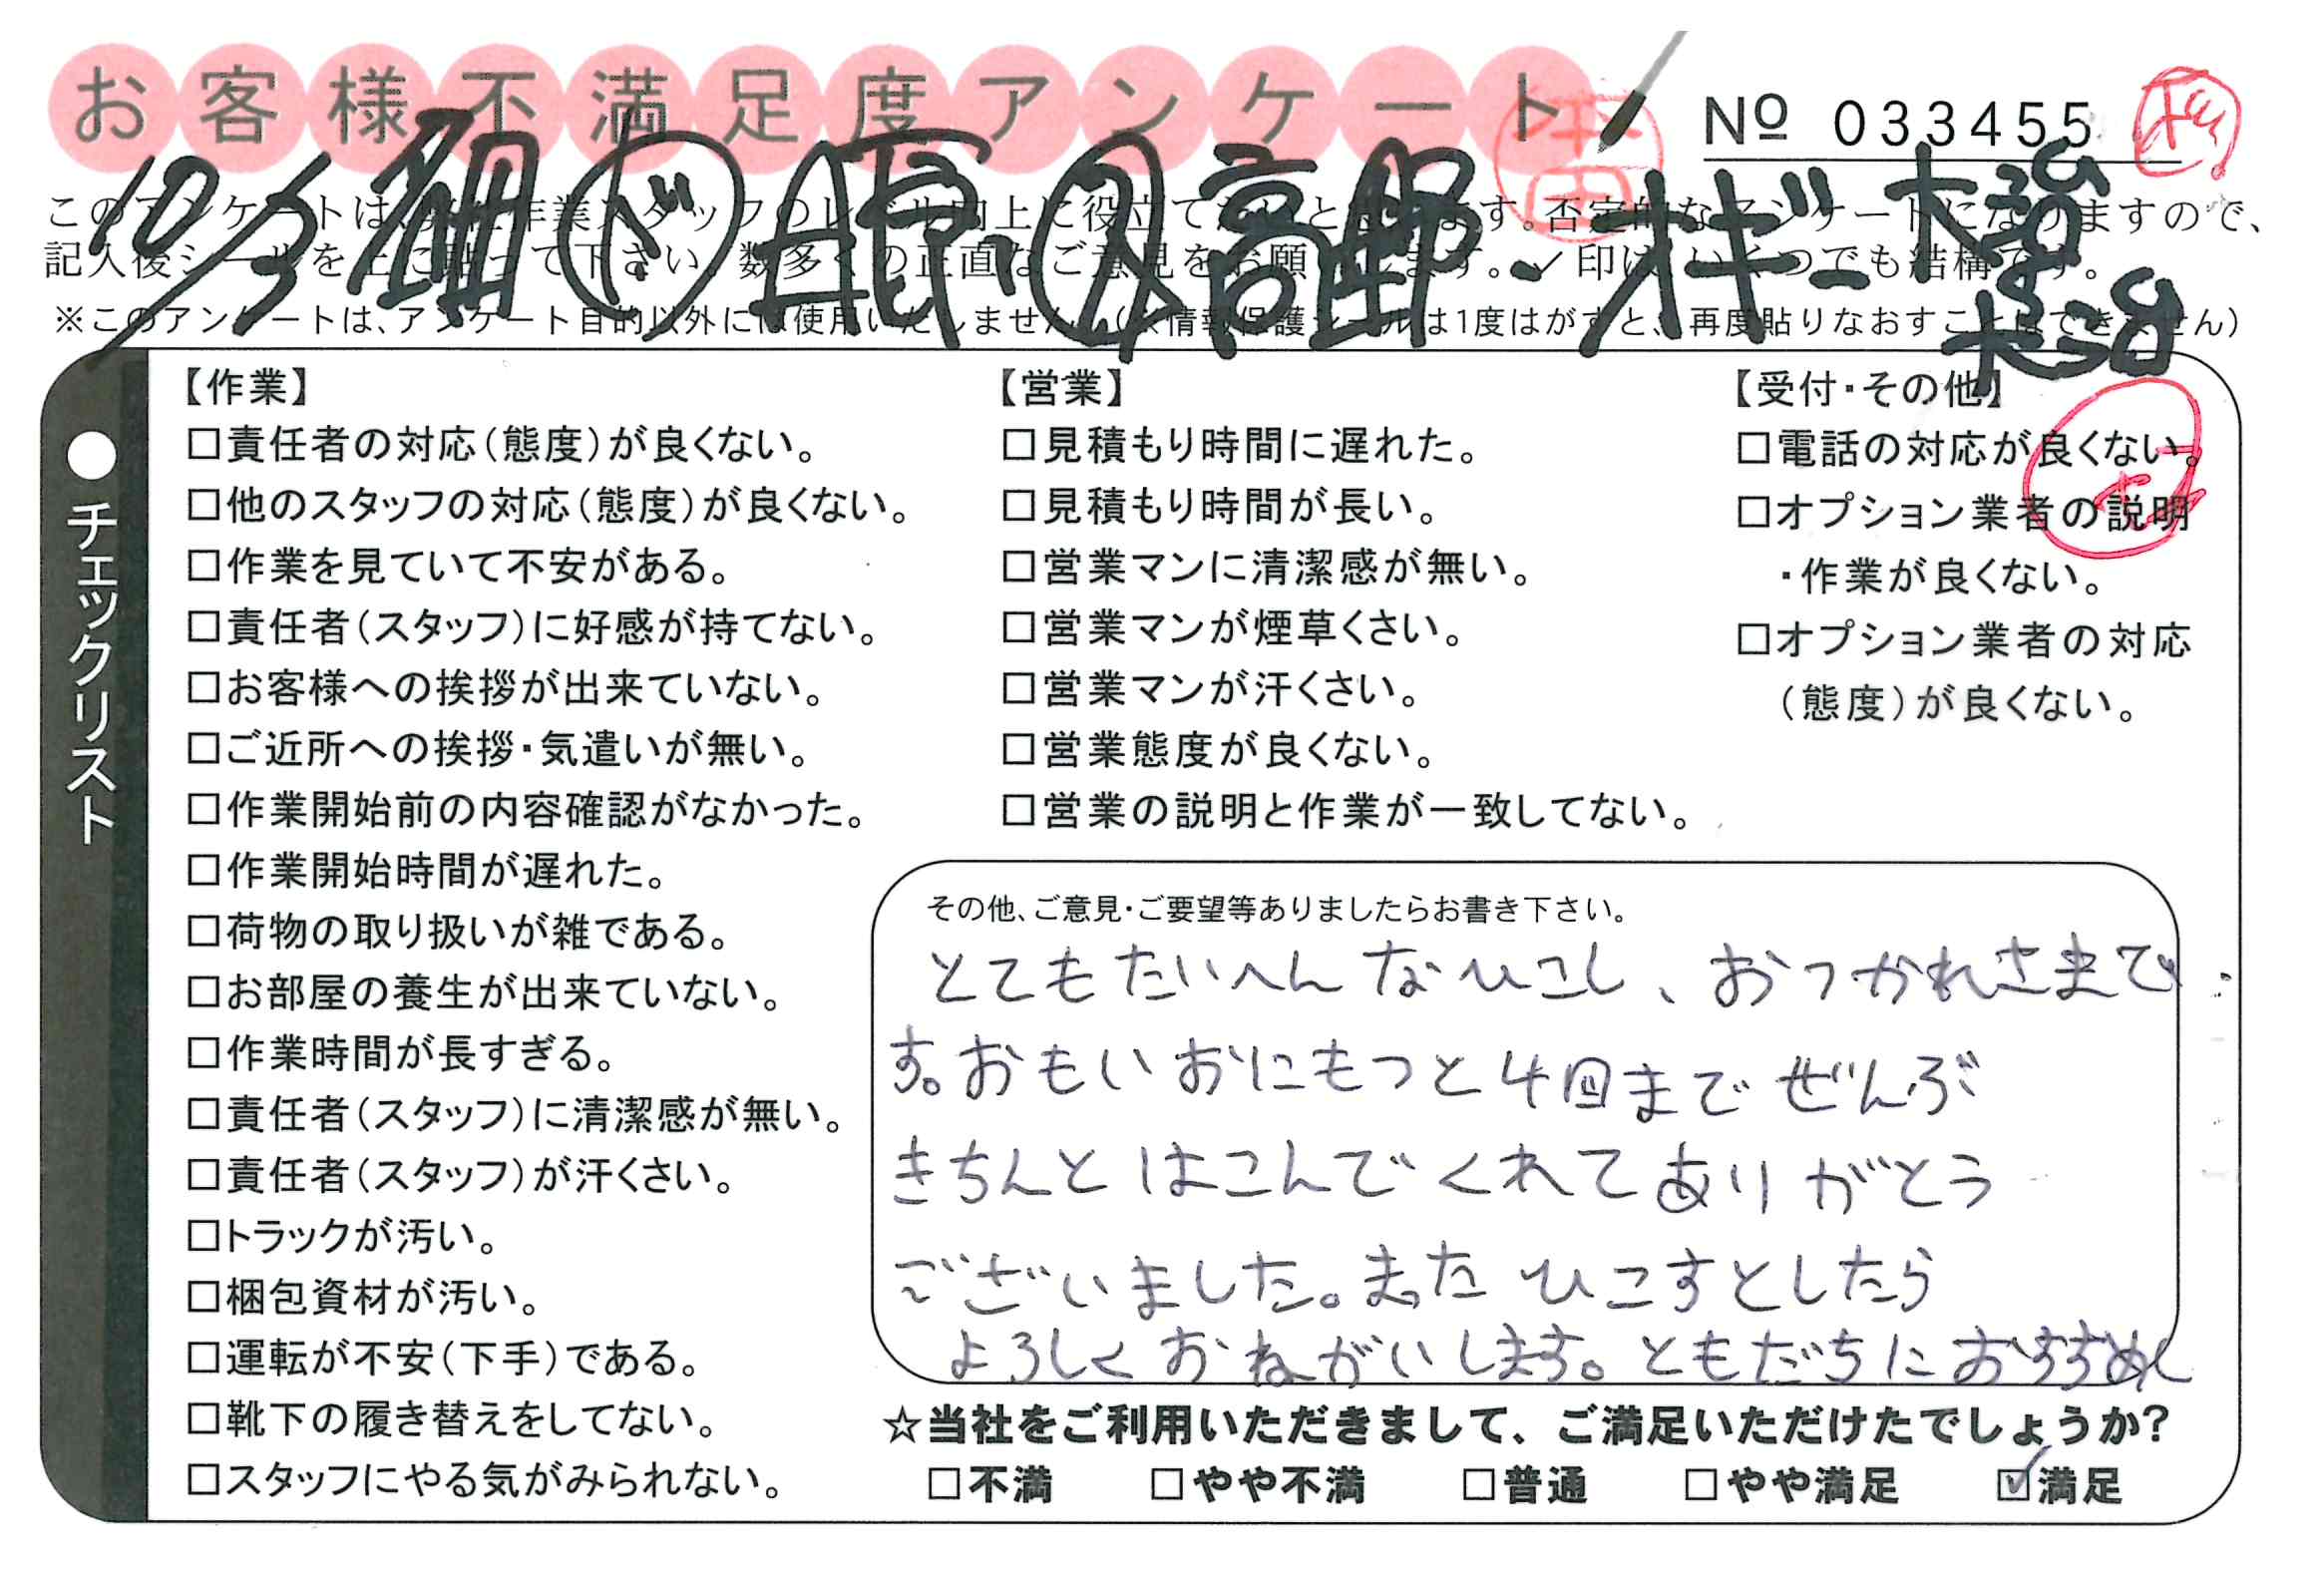 お客様不満足度アンケート
№ 033455
このアンケートは、作業スタッフのレベル向上に役立て す。否定的なアンケートになりますので、
記入後シールを上に貼って下さい。数多くの正直なご意見をお願 ます。✓印は、いくつでも結構です。
※このアンケートは、アンケート目的以外には使用いたしません。(※情報保護シールは1度はがすと、再度貼りなおすことはできません)
10/3 畑 ド 原・ 高野 - オギー 大沼
●チェックリスト
【作業】
□責任者の対応(態度)が良くない。
□他のスタッフの対応(態度)が良くない。
□作業を見ていて不安がある。
□責任者(スタッフ)に好感が持てない。
□お客様への挨拶が出来ていない。
□ご近所への挨拶・気遣いが無い。
□作業開始前の内容確認がなかった。
□作業開始時間が遅れた。
□荷物の取り扱いが雑である。
□お部屋の養生が出来ていない。
□作業時間が長すぎる。
□責任者(スタッフ)に清潔感が無い。
□責任者(スタッフ)が汗くさい。
□トラックが汚い。
□梱包資材が汚い。
□運転が不安(下手)である。
□靴下の履き替えをしてない。
□スタッフにやる気がみられない。
【営業】
□見積もり時間に遅れた。
□見積もり時間が長い。
□営業マンに清潔感が無い。
□営業マンが煙草くさい。
□営業マンが汗くさい。
□営業態度が良くない。
□営業の説明と作業が一致してない。
【受付・その他】
□電話の対応が良くない。
□オプション業者の説明
・作業が良くない。
□オプション業者の対応
(態度)が良くない。
その他、ご意見・ご要望等ありましたらお書き下さい。
とてもたいへんなひこし、おつかれさまで
す。おもいおにもつと4回まで ぜんぶ
きちんとはこんでくれてありがとう
ございました。またひこすとしたら
よろしくおねがいします。ともだちにおすすめし
☆当社をご利用いただきまして、ご満足いただけたでしょうか?
□不満 □やや不満 □普通 □やや満足 ☑満足